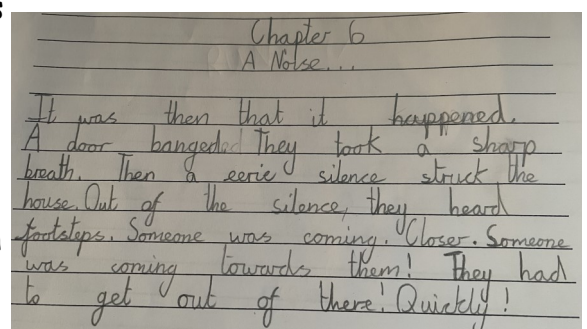 Chapter 6
A Noise...
It was then that it happened.
A door banged. They took a sharp
breath. Then a eerie silence struck the
house. Out of the silence, they heard
footsteps. Someone was coming. Closer. Someone
was coming towards them! They had
to get out of there! Quickly!